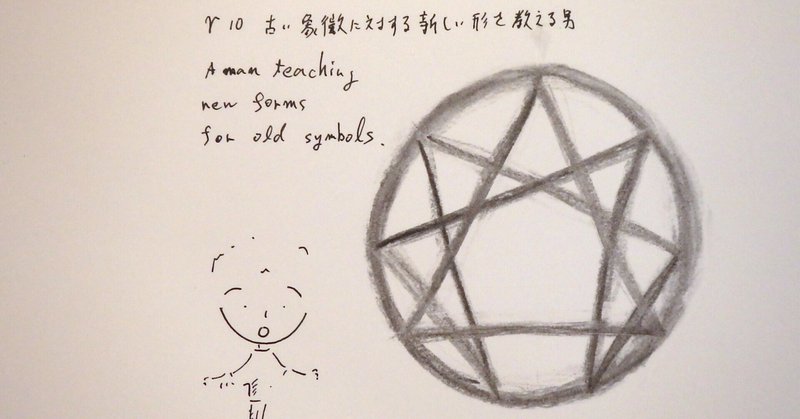 ♈ 10 古い象徴に対する新しい形を教える男
A man teaching
new forms
for old symbols.